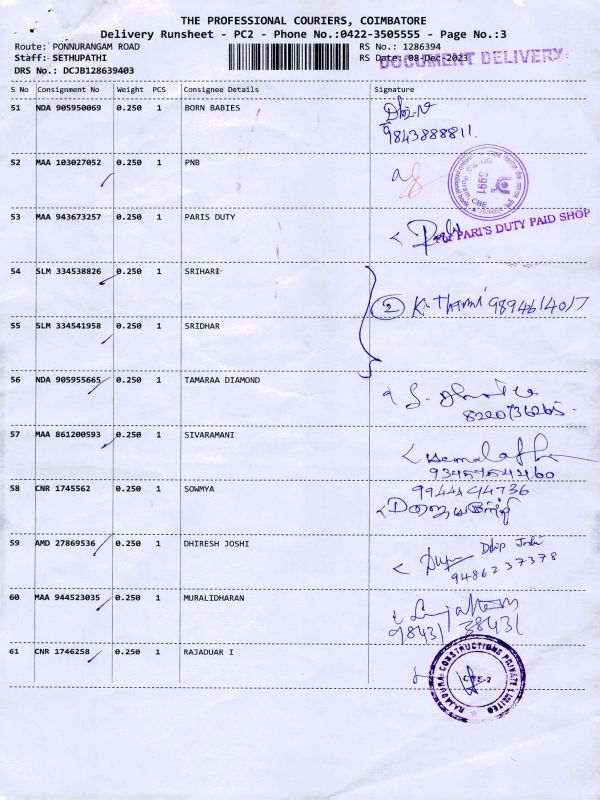 THE PROFESSIONAL COURIERS, COIMBATORE
Delivery Runsheet - PC2 - Phone No.:0422-3505555 - Page No.:3
Route: PONNURANGAM ROAD RS No.: 1286394
Staff: SETHUPATHI RS Date: 08-Dec-2023
DOCUMENT DELIVERY
DRS No.: DCJB128639403
S No Consignment No Weight PCS Consignee Details Signature
51 NDA 905950069 0.250 1 BORN BABIES
9843888811.
52 MAA 103027052 0.250 1 PNB
53 MAA 943673257 0.250 1 PARIS DUTY
PARI'S DUTY PAID SHOP
54 SLM 334538826 0.250 1 SRIHARI
2 9894614017
55 SLM 334541958 0.250 1 SRIDHAR
56 NDA 905955665 0.250 1 TAMARAA DIAMOND
57 MAA 861200593 0.250 1 SIVARAMANI
58 CNR 1745562 0.250 1 SOWMYA
59 AMD 27869536 0.250 1 DHIRESH JOSHI
Dilip Joshi
9486237378
60 MAA 944523035 0.250 1 MURALIDHARAN
98431 38431
61 CNR 1746258 0.250 1 RAJADUAR I
CONSTRUCTIONS PRIVATE LIMITED
CBE-2